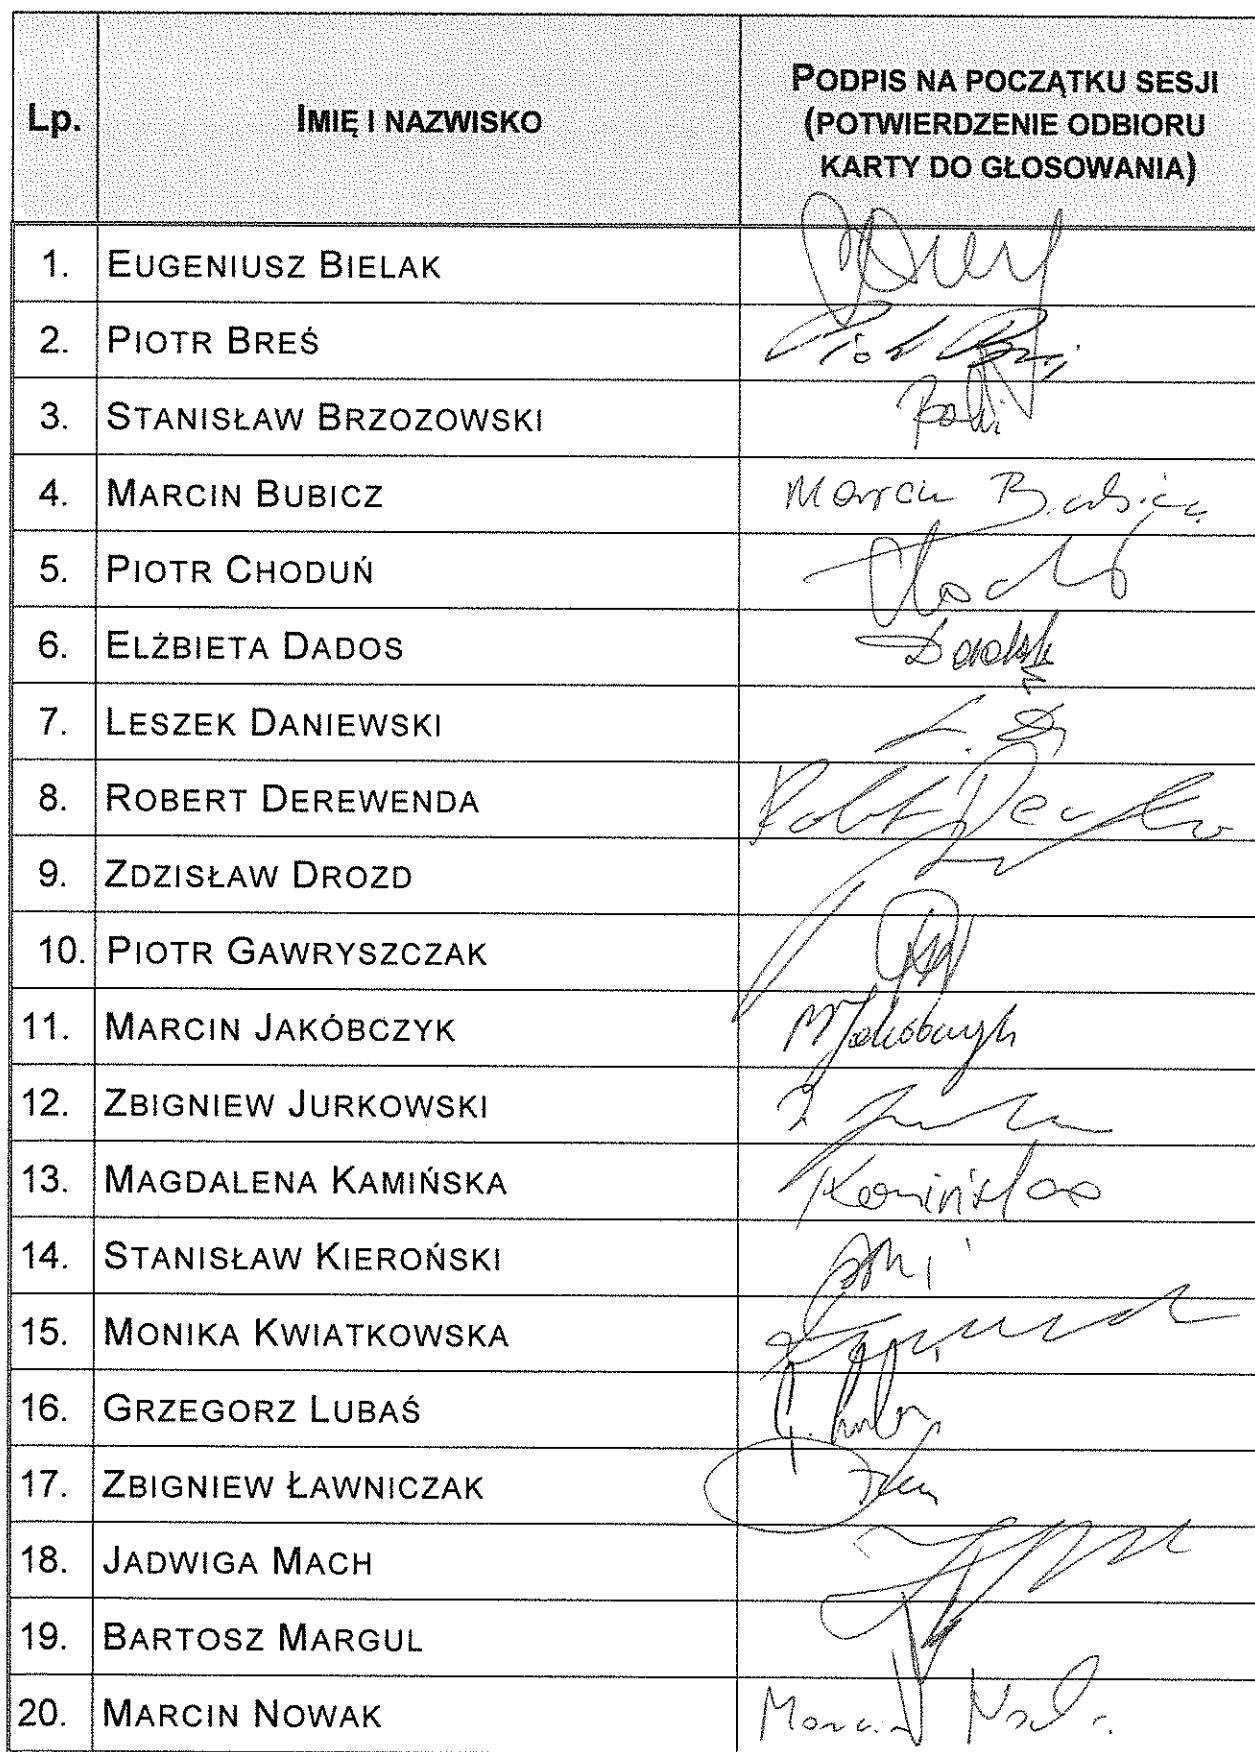 Lp.
IMIĘ I NAZWISKO
PODPIS NA POCZĄTKU SESJI
(POTWIERDZENIE ODBIORU
KARTY DO GŁOSOWANIA)
1. EUGENIUSZ BIELAK
2. PIOTR BREŚ
3. STANISŁAW BRZOZOWSKI
4. MARCIN BUBICZ Marcin Bubicz
5. PIOTR CHODUŃ
6. ELŻBIETA DADOS
7. LESZEK DANIEWSKI
8. ROBERT DEREWENDA
9. ZDZISŁAW DROZD
10. PIOTR GAWRYSZCZAK
11. MARCIN JAKÓBCZYK MJakóbczyk
12. ZBIGNIEW JURKOWSKI
13. MAGDALENA KAMIŃSKA Kamińska
14. STANISŁAW KIEROŃSKI
15. MONIKA KWIATKOWSKA
16. GRZEGORZ LUBAŚ
17. ZBIGNIEW ŁAWNICZAK
18. JADWIGA MACH
19. BARTOSZ MARGUL
20. MARCIN NOWAK Marcin Nowak